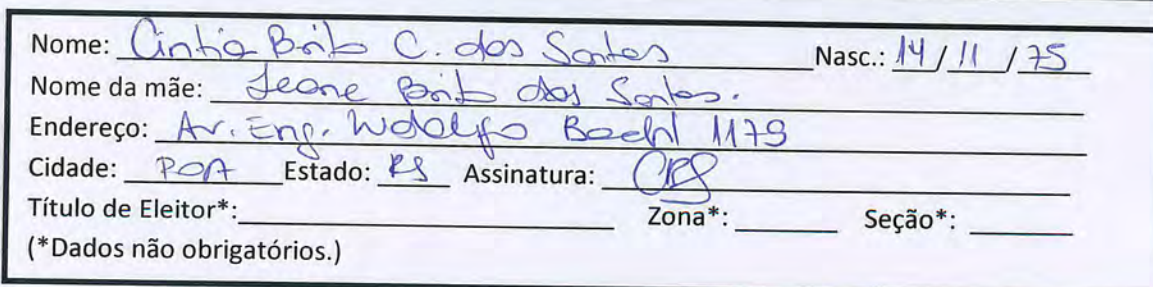 Nome: Cintia Brito C. dos Santos Nasc.: 14/11/75
Nome da mãe: Jeane Brito dos Santos.
Endereço: Av. Eng. Ludolfo Boehl 1179
Cidade: POA Estado: RS Assinatura:
Título de Eleitor*: Zona*: Seção*:
(*Dados não obrigatórios.)